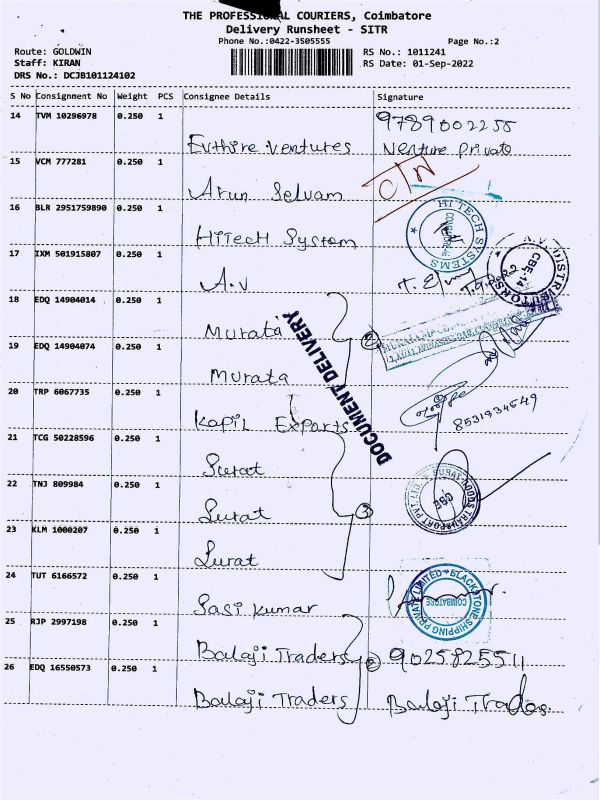 THE PROFESSIONAL COURIERS, Coimbatore
Delivery Runsheet - SITR
Phone No.:0422-3505555
Page No.:2
Route: GOLDWIN
RS No.: 1011241
Staff: KIRAN
RS Date: 01-Sep-2022
DRS No.: DCJB101124102
S No Consignment No Weight PCS Consignee Details Signature
14 TVM 10296978 0.250 1
9789002255
Venture Private
15 VCM 777281 0.250 1 Ventures
C N
16 BLR 2951759890 0.250 1 Arun Selvam
HI TECH SYSTEMS
COIMBATORE
17 IXM 501915807 0.250 1 HiTecH System
DISTRIBUTORS
CBE-14
18 EDQ 14904014 0.250 1 A.V
DOCUMENT DELIVERY
19 EDQ 14904074 0.250 1 Murata
2
20 TRP 6067735 0.250 1 Murata
21 TCG 50228596 0.250 1 Kapil Exports
8531934549
22 TNJ 809984 0.250 1 Surat
SURAT GOODS TRANSPORT PVT. LTD.
CBE
23 KLM 1000207 0.250 1 Surat
3
24 TUT 6166572 0.250 1 Surat
BLACKSTONE SHIPPING PRIVATE LIMITED
COIMBATORE
25 RJP 2997198 0.250 1 Sasi Kumar
26 EDQ 16550573 0.250 1 Balaji Traders
2
9025825511
Balaji Traders
Balaji Trades.